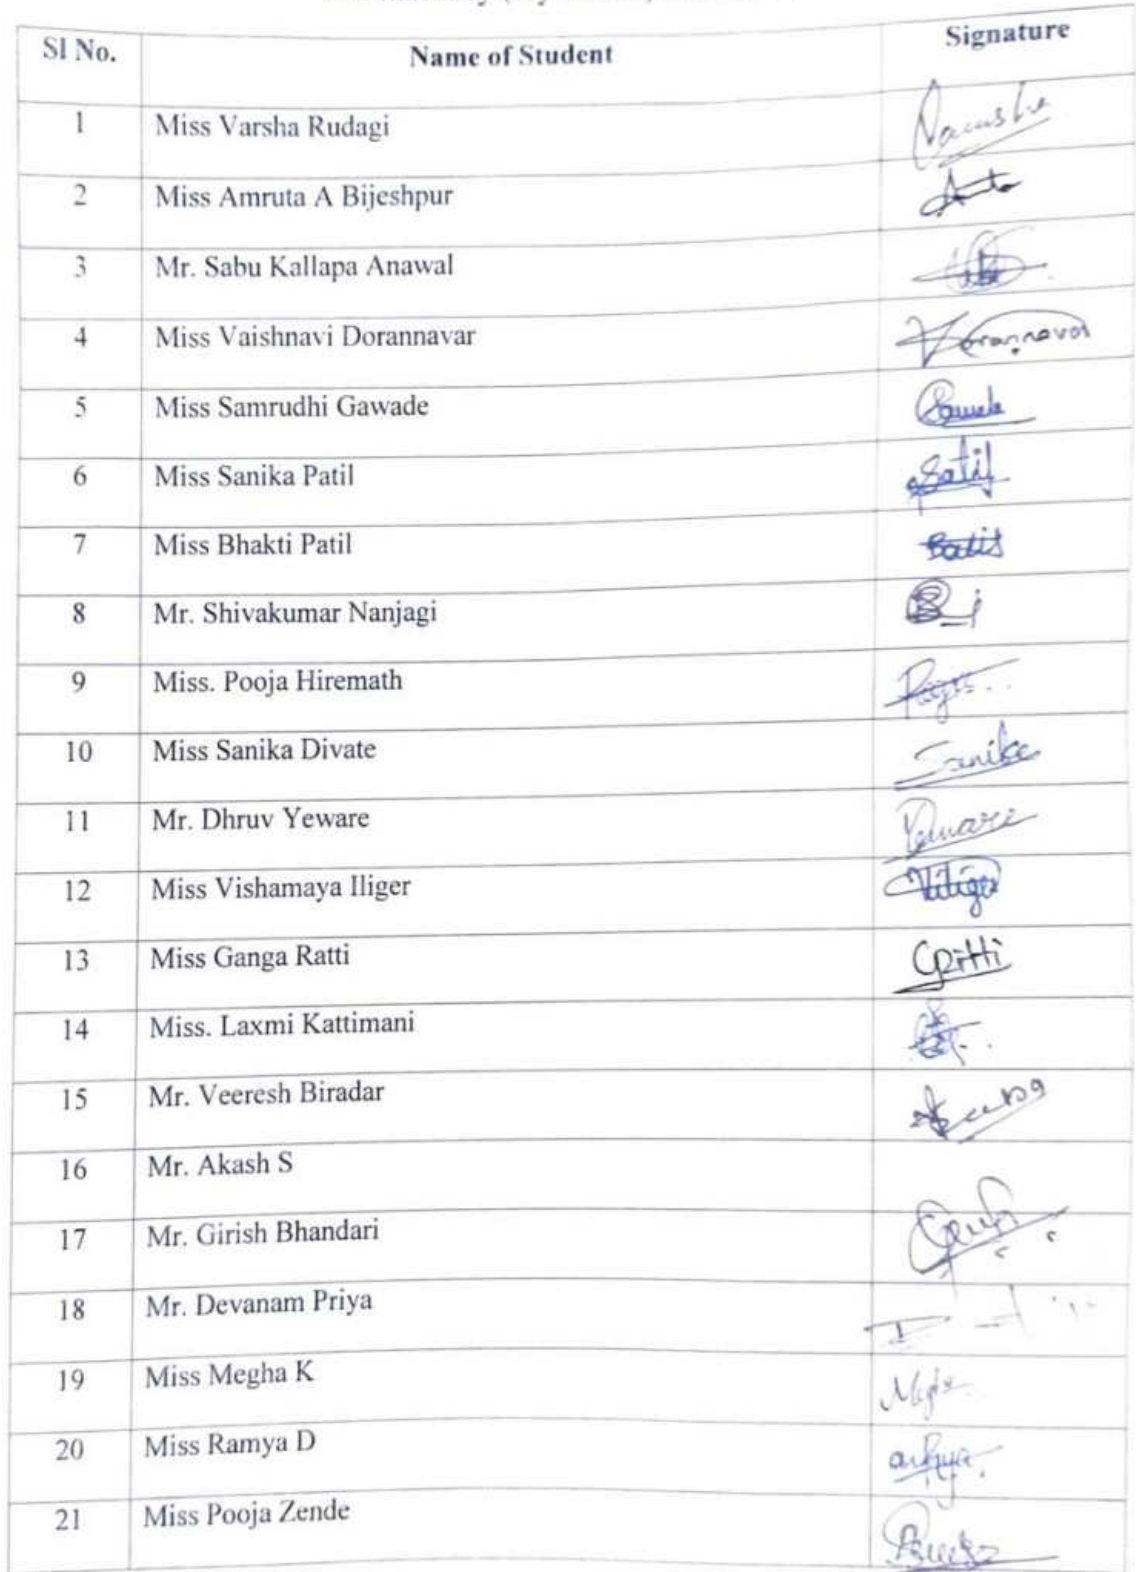 Sl No. Name of Student Signature
1 Miss Varsha Rudagi
2 Miss Amruta A Bijeshpur
3 Mr. Sabu Kallapa Anawal
4 Miss Vaishnavi Dorannavar Dorannavar
5 Miss Samrudhi Gawade
6 Miss Sanika Patil Patil
7 Miss Bhakti Patil
8 Mr. Shivakumar Nanjagi
9 Miss. Pooja Hiremath
10 Miss Sanika Divate Sanika
11 Mr. Dhruv Yeware Yeware
12 Miss Vishamaya Iliger
13 Miss Ganga Ratti
14 Miss. Laxmi Kattimani
15 Mr. Veeresh Biradar
16 Mr. Akash S
17 Mr. Girish Bhandari
18 Mr. Devanam Priya
19 Miss Megha K
20 Miss Ramya D
21 Miss Pooja Zende